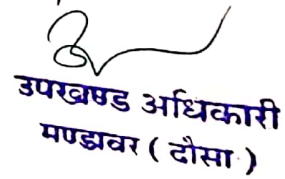 उपखण्ड अधिकारी
मण्डावर ( दौसा )